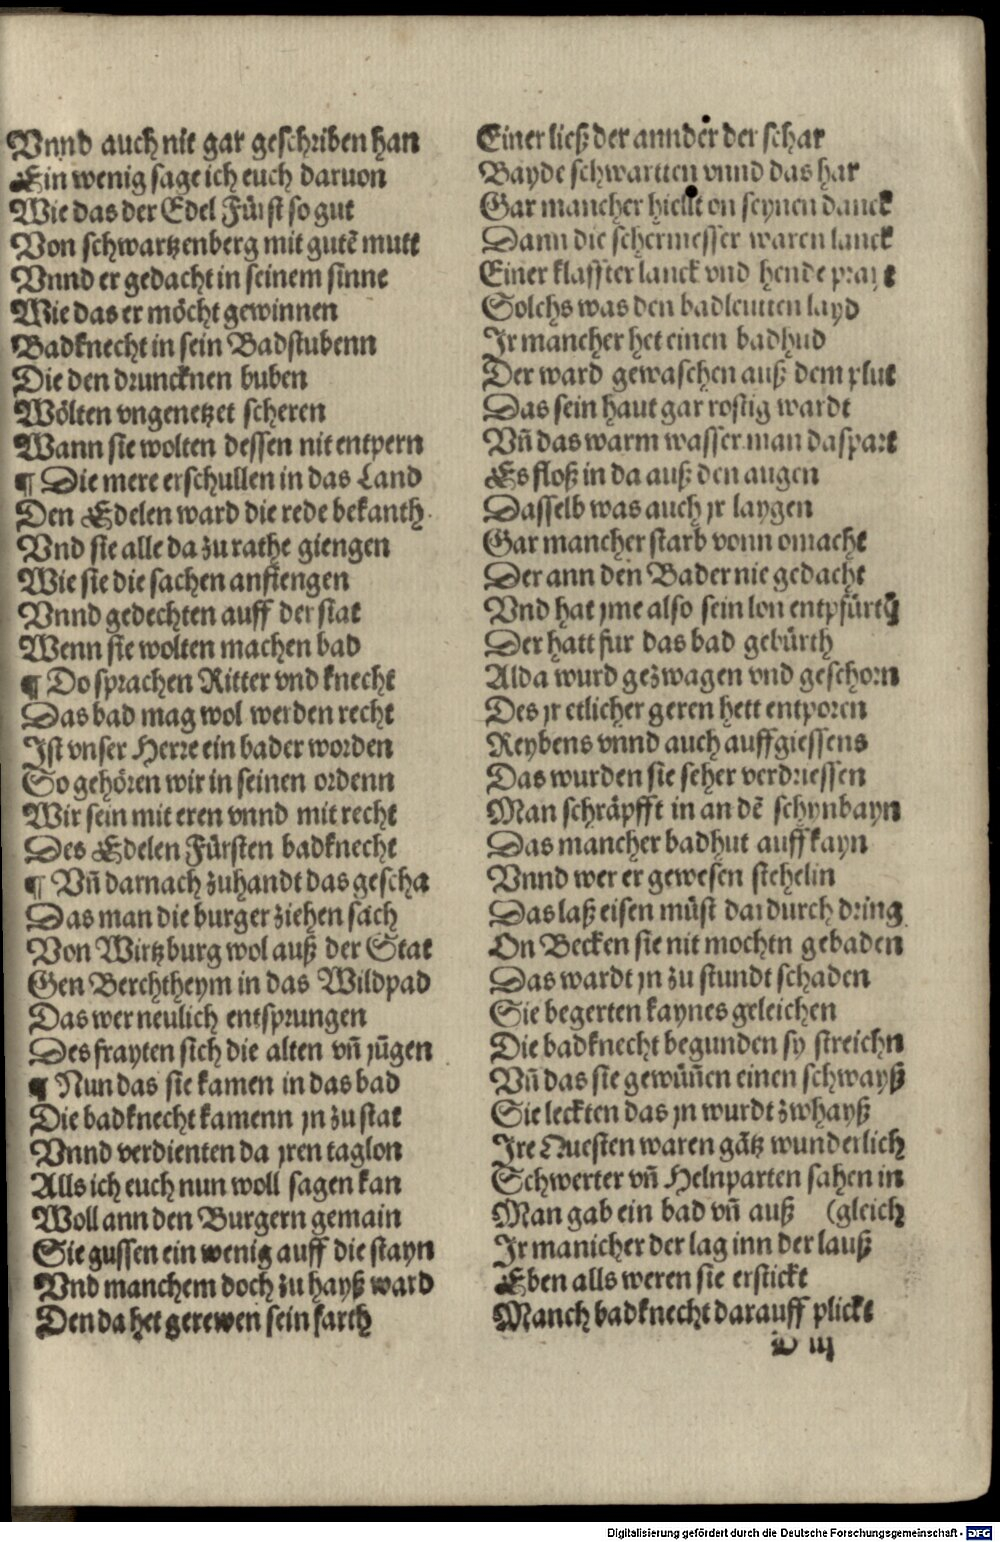 Vnnd auch nit gar geschriben han
Ein wenig sage ich euch daruon
Wie das der Edel Fürst so gut
Von schwartzenberg mit gutē mutt
Vnnd er gedacht in seinem sinne
Wie das er möcht gewinnen
Badknecht in sein Badstubenn
Die den druncknen buben
Wölten vngenetzet scheren
Wann sie wolten dessen nit entpern
¶ Die mere erschullen in das Land
Den Edelen ward die rede bekanth
Vnd sie alle da zu rathe giengen
Wie sie die sachen anfiengen
Vnnd gedechten auff der stat
Wenn sie wolten machen bad
¶ Do sprachen Ritter vnd knecht
Das bad mag wol werden recht
Ist vnser Herre ein bader worden
So gehören wir in seinen ordenn
Wir sein mit eren vnnd mit recht
Des Edelen Fürsten badknecht
¶ Vn̄ darnach zuhandt das gescha
Das man die burger ziehen sach
Von Wirtzburg wol auß der Stat
Gen Berchtheym in das Wildpad
Das wer neulich entsprungen
Des frayten sich die alten vn̄ jūgen
¶ Nun das sie kamen in das bad
Die badknecht kamenn jn zu stat
Vnnd verdienten da jren taglon
Alls ich euch nun woll sagen kan
Woll ann den Burgern gemain
Sie gussen ein wenig auff die stayn
Vnd manchem doch zu hayß ward
Den da het gerewen sein farth
Einer ließ der annder der schar
Bayde schwartten vnnd das har
Gar mancher hiellt on seynen danck
Dann die schermesser waren lanck
Einer klaffter lanck vnd hende prayt
Solchs was den badleutten layd
Ir mancher het einen badhud
Der ward gewaschen auß dem plut
Das sein haut gar rostig wardt
Vn̄ das warm wasser man da spart
Es floß in da auß den augen
Dasselb was auch jr laygen
Gar mancher starb vonn omacht
Der ann den Bader nie gedacht
Vnd hat jme also sein lon entpfürth
Der hatt fur das bad gebürth
Alda wurd gezwagen vnd geschorn
Des jr etlicher geren hett entporen
Reybens vnnd auch auffgiessens
Das wurden sie seher verdriessen
Man schräpfft in an dē schynbayn
Das mancher badhut auff kayn
Vnnd wer er gewesen stehelin
Das laß eisen müst dardurch dring
On Becken sie nit mochtn gebaden
Das wardt jn zu stundt schaden
Sie begerten kaynes geleichen
Die badknecht begunden sy streichn
Vn̄ das sie gewūn̄en einen schwayß
Sie leckten das jn wurdt zwhayß
Ire Questen waren gātz wunderlich
Schwerter vn̄ Helnparten sahen in
Man gab ein bad vn̄ auß (gleich
Ir manicher der lag inn der lauß
Eben alls weren sie erstickt
Manch badknecht darauff plickt
D iij
Digitalisierung gefördert durch die Deutsche Forschungsgemeinschaft - DFG